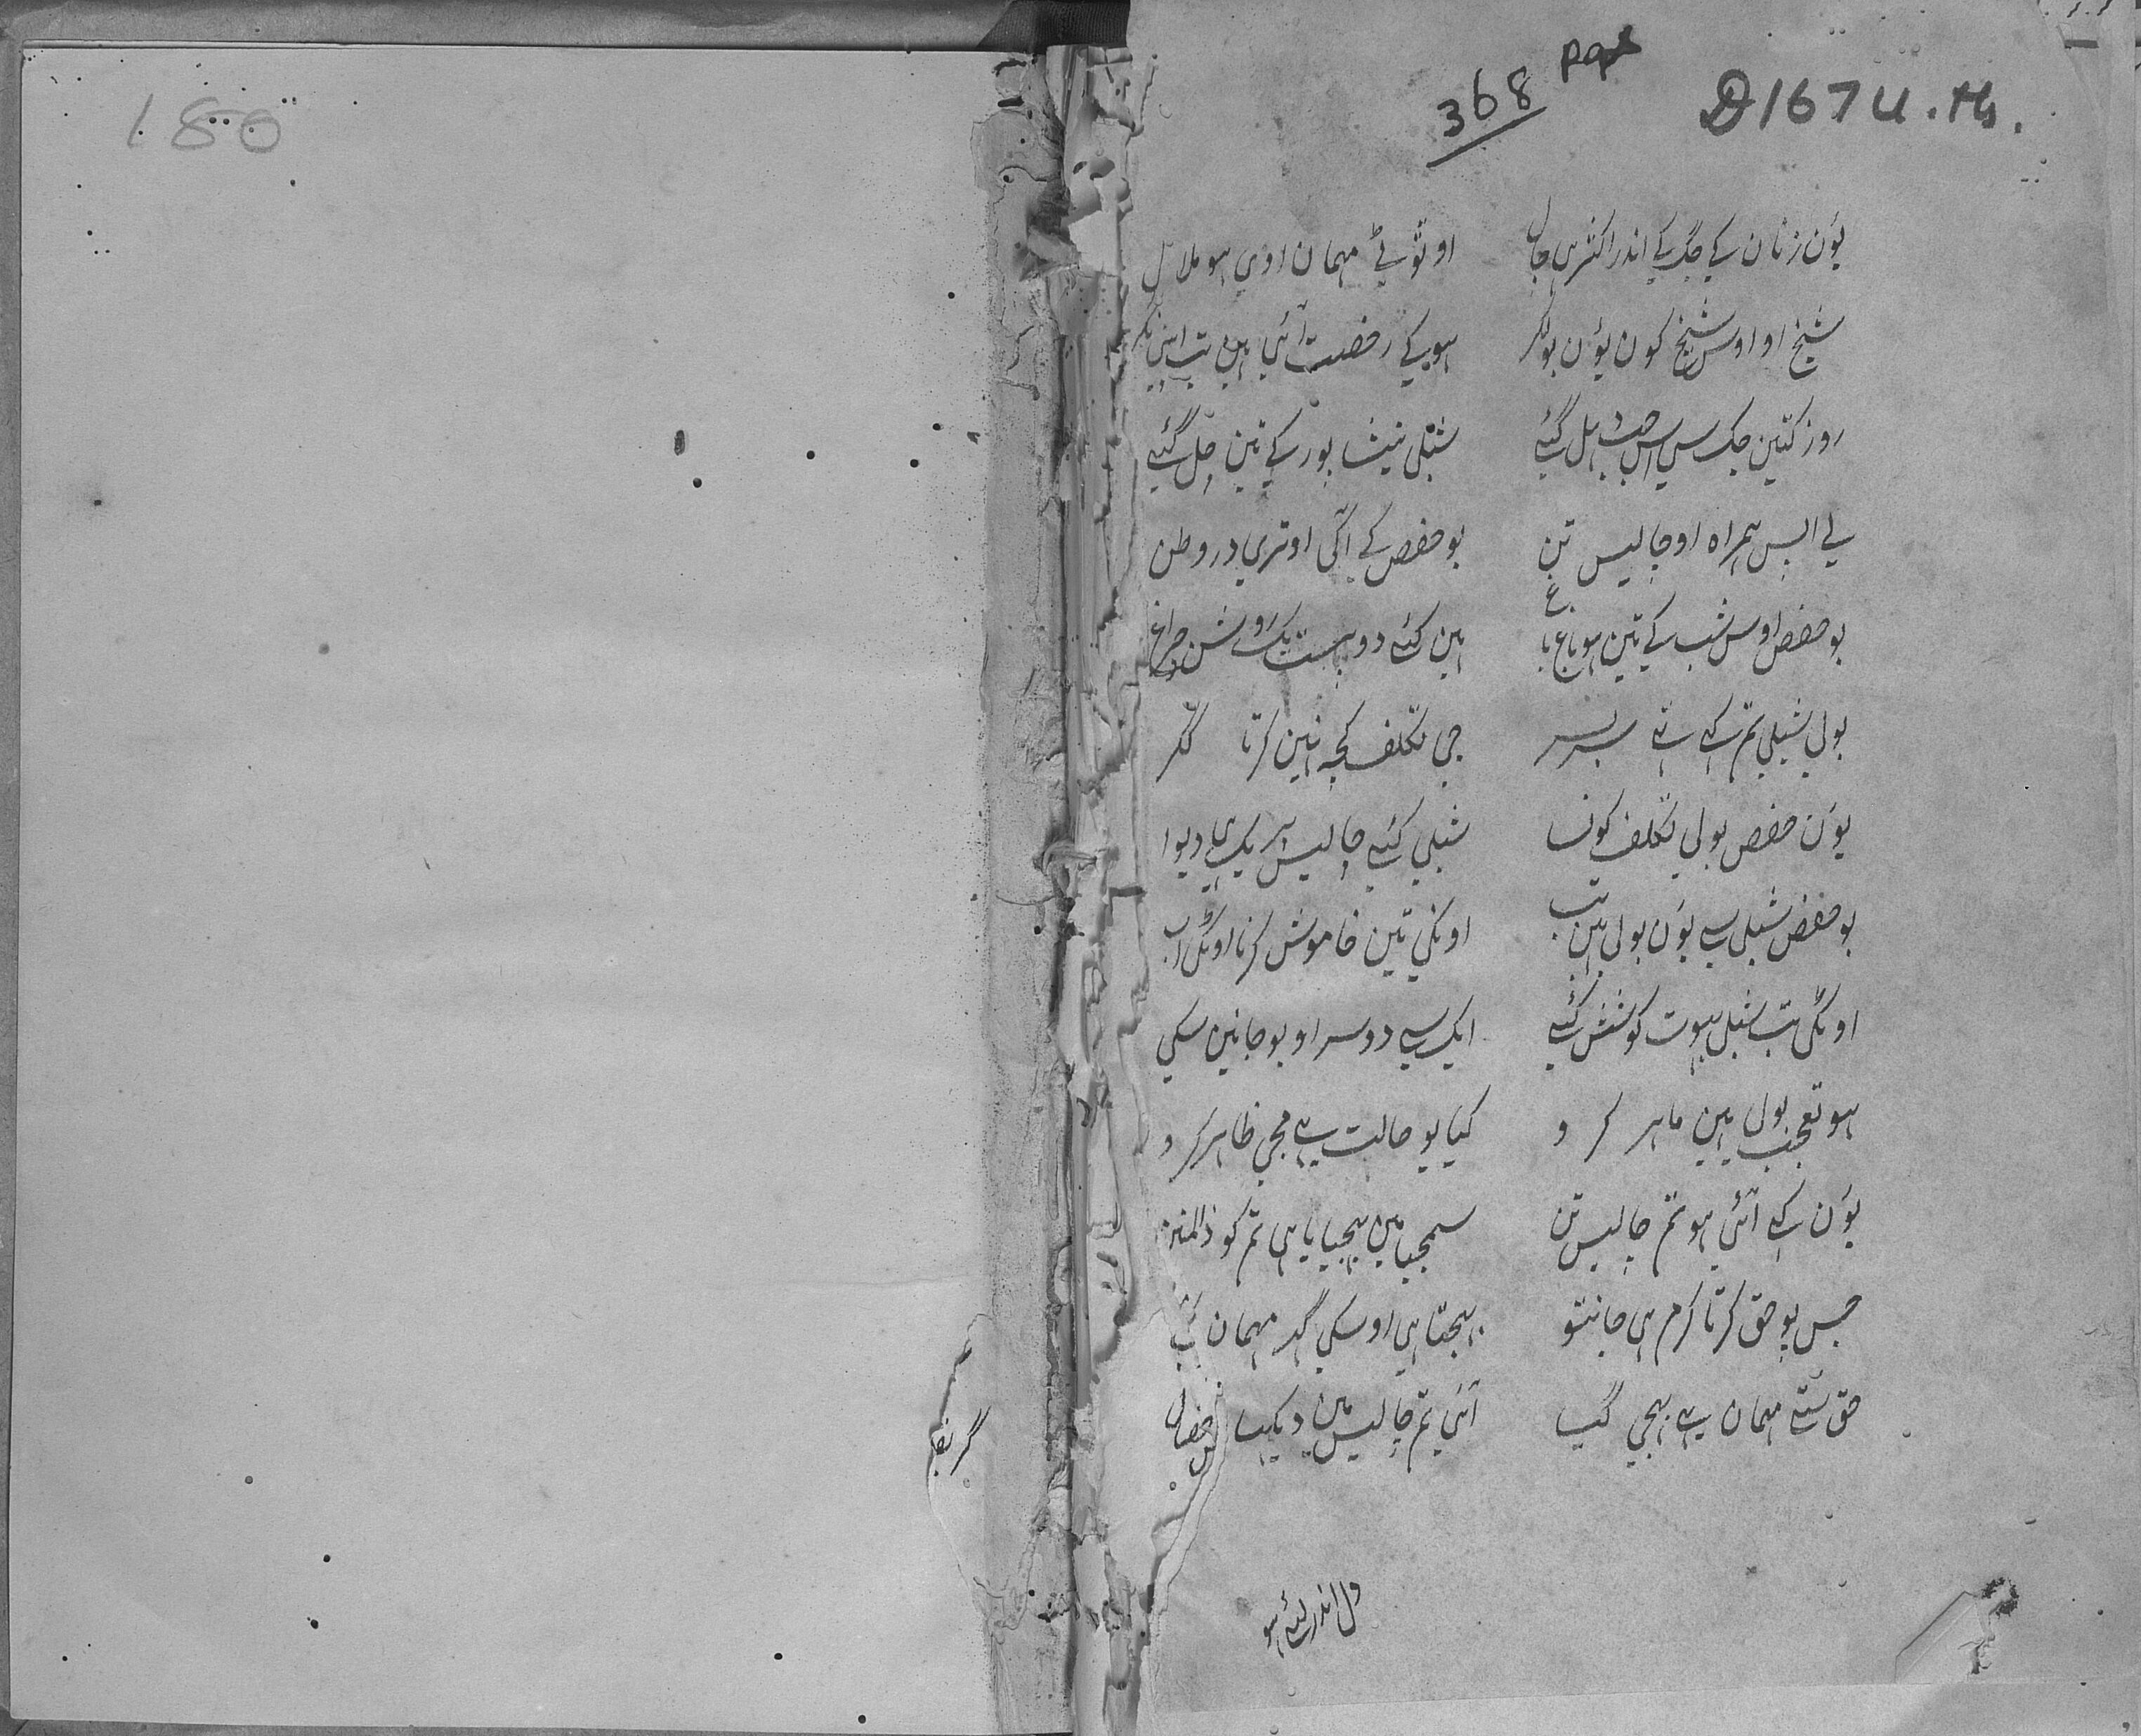 180
368 page
D167U.Ms.
یوٗن زنان کے جگ کے اندر اکثر ہی حال او توٗٹے مہمان اوی ہو ملال
شیخ او اوس شیخ کون یوٗن بولکر ہویکے رخصت آئی ہین تب اپنی
روز کتین جک سی اس حب مل گئے شبلی نیشاپور کے تین چل گئے
لے اپس ہمراہ او چالیس تن بو حفص کے آگی اوتری در وطن
بو حفص اوس شب کے تین ہو باغ باغ ہین کئے دو بست یک روشن چراغ
بولی شبلی تم کہے تے سربسر جی تکلف کچہ نین کرتا مگر
یوٗن حفص بولی تکلف کونسا شبلی کئے چالیس پر یک ہے دیوا
بو حفص شبلی سے یوٗن بولی ہین تب اونکی تین خاموش کرنا اوٹکی اب
اوٹکی تب شبلی بہوت کوشش کئے ایک سے دوسرا او بوجا نین سکی
ہو تعجب بولی ہین ماہر کرو کیا یو حالت ہے مجی ظاہر کرو
یوٗن کہے آئی ہو تم چالیس تن سمجیا مین بہیجیا ہی تم کو ذالمنن
جس پو حق کرتا کرم ہی جانتو بہیجتا ہی اوسکی گہر مہمان
حق ستے مہمان ہے بہجی گیا آئی تم چالیس مین دیکیا
دل اندر لئے ہو